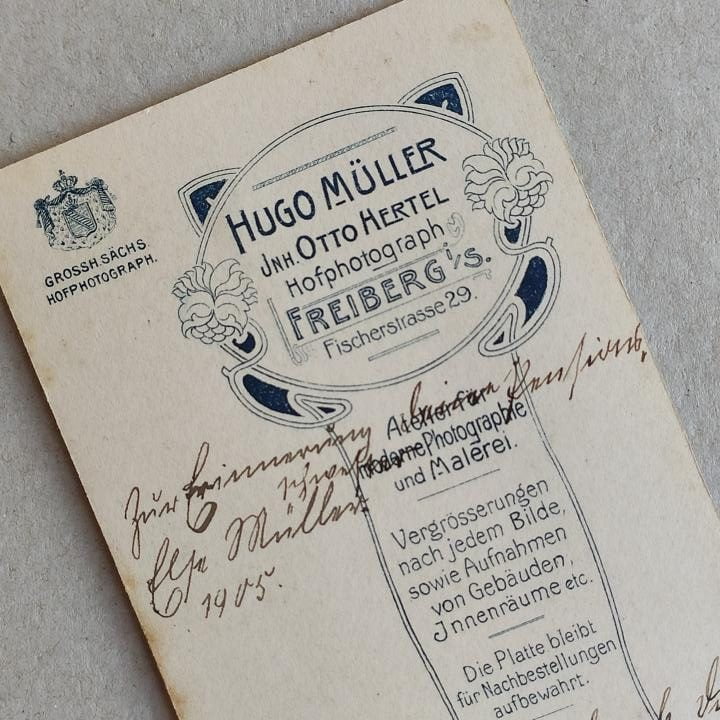 GROSSH. SÄCHS.
HOFPHOTOGRAPH.
HUGO MÜLLER
JNH. OTTO HERTEL
Hofphotograph
FREIBERG i/S.
Fischerstrasse 29.
Atelier für
moderne Photographie
und Malerei.
Zur Erinnerung Deiner Pensions
schwester
Else Müller
1905.
Vergrösserungen
nach jedem Bilde,
sowie Aufnahmen
von Gebäuden,
Jnnenräume etc.
Die Platte bleibt
für Nachbestellungen
aufbewahrt.